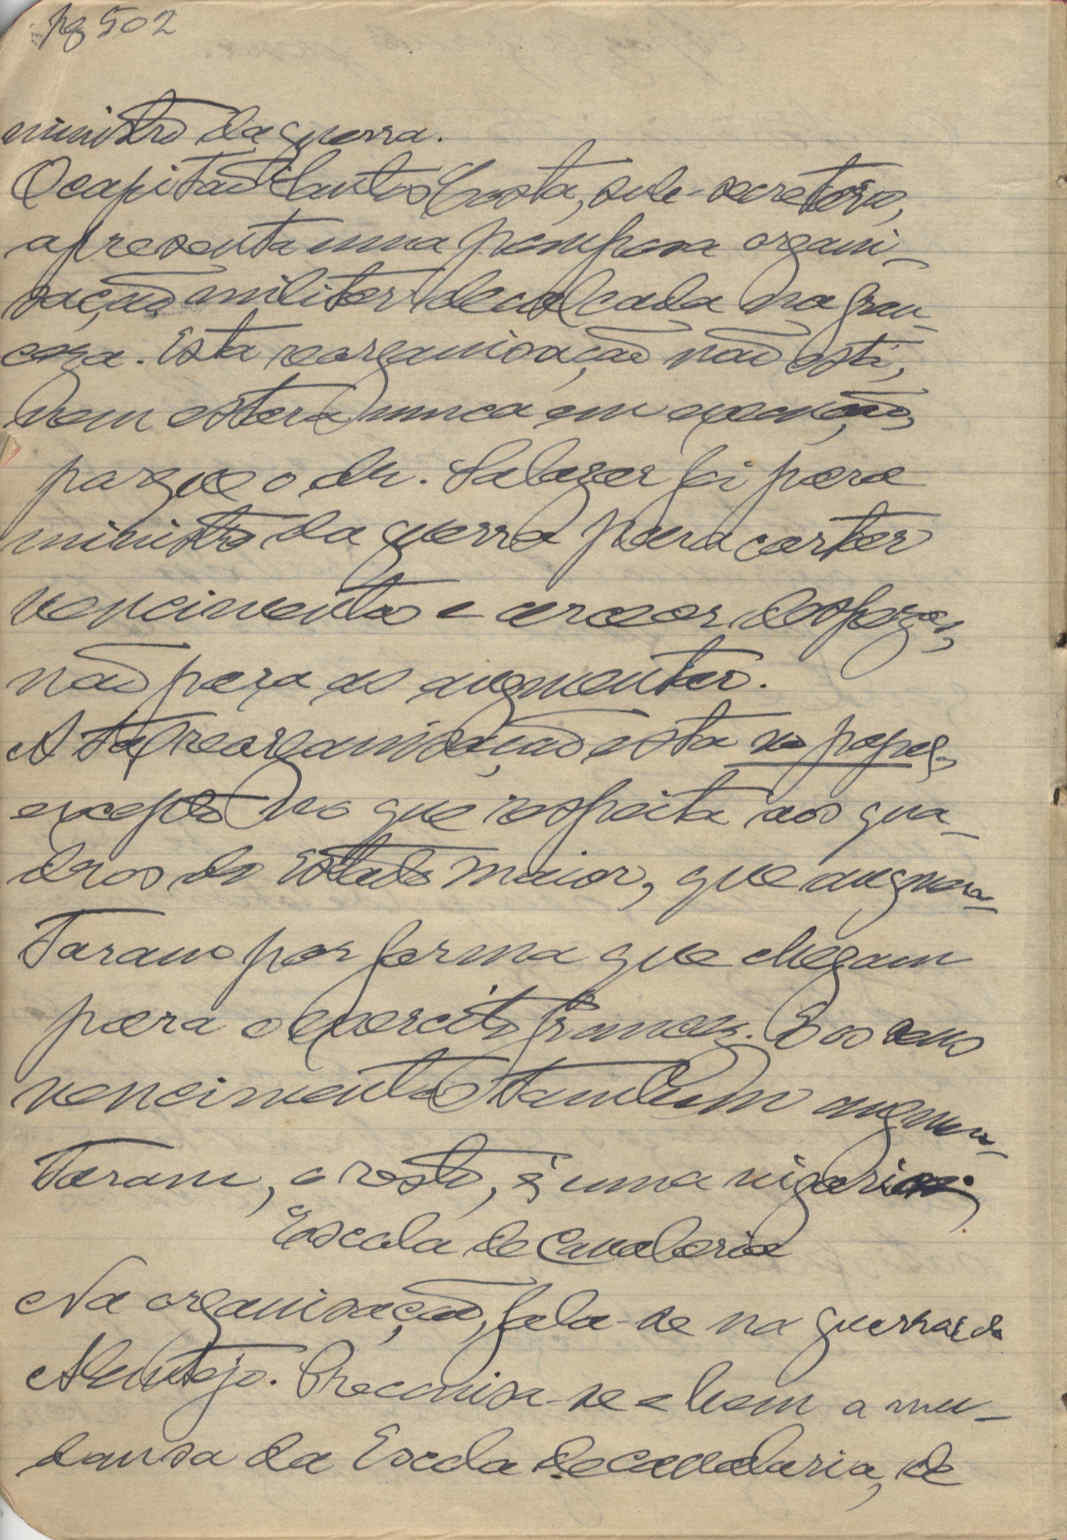 pg 502
ministro da guerra.
O capitão Santos Costa, sub-secretario,
apresenta uma pomposa organi-
sação militar decalcada na fran-
ceza. Esta reorganisação não está,
nem estará nunca em execução,
porque o dr. Salazar foi para
ministro da guerra para cortar
vencimentos e cercear despezas,
não para as augmentar.
A tal reorganisação está no papel,
excepto no que respeita aos qua-
dros do Estado Maior, que augmen-
taram por forma que chegam
para o exercito francez. E os seus
vencimentos tambem augmen-
taram, o resto, é uma vigarice.
Escola de Cavalaria
Na organisação, fala-se na guerra do
Alentejo. Preconisa-se e bem a mu-
dansa da Escola de cavalaria, de